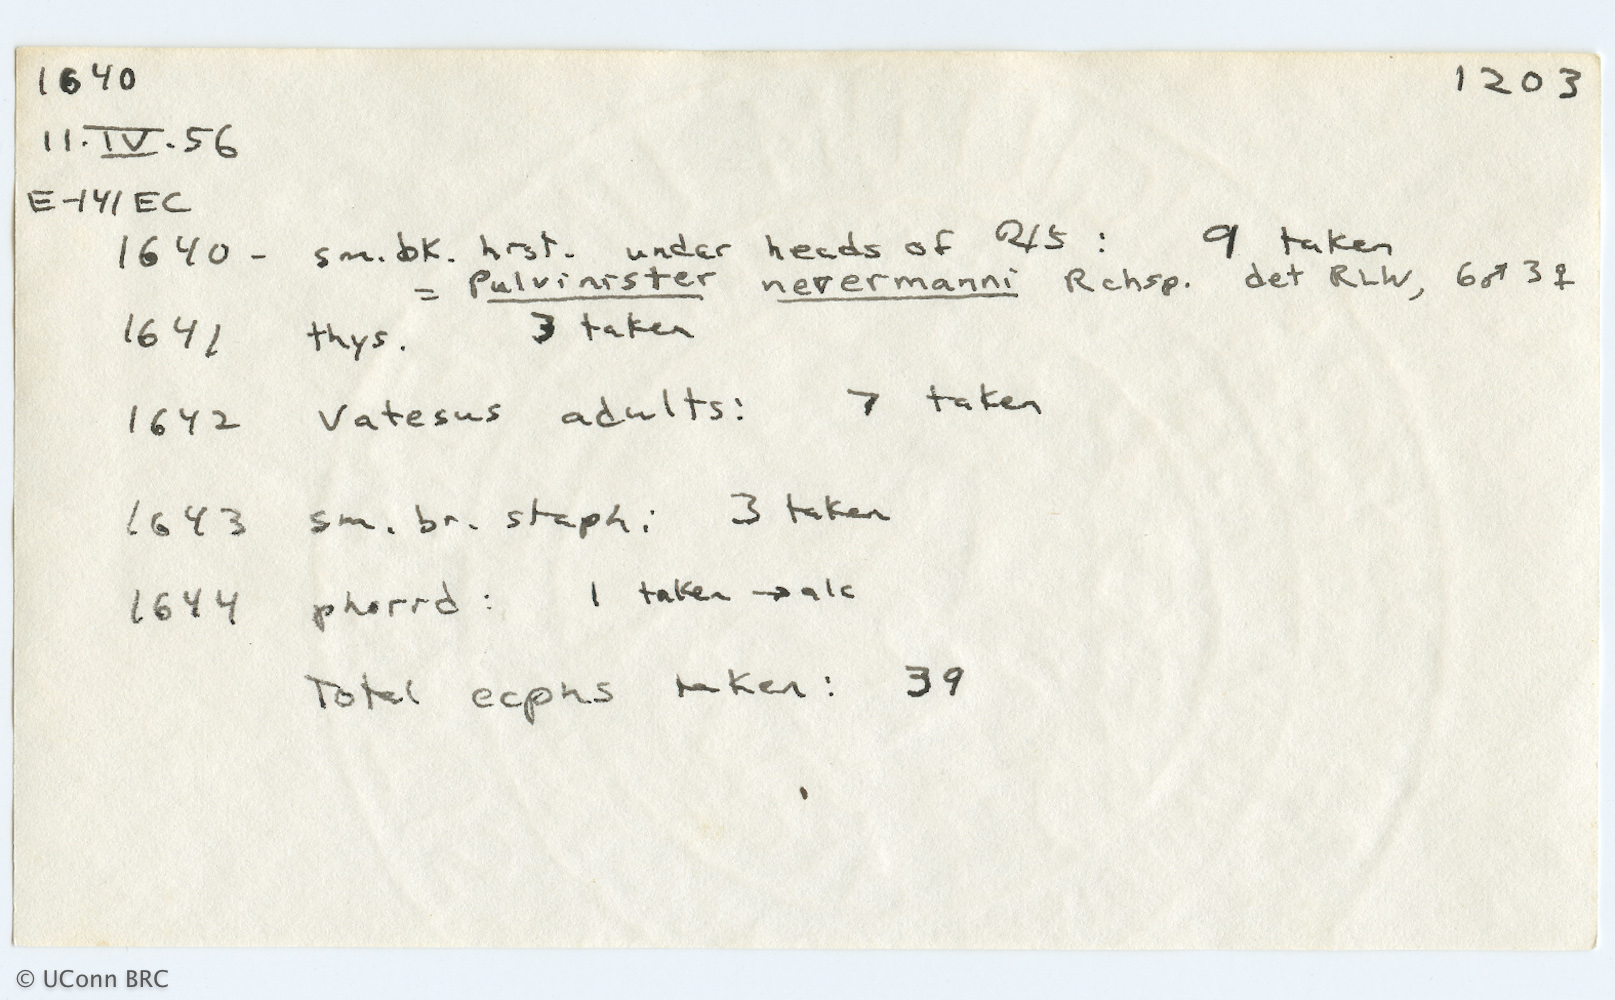 1640 1203
11.IV.56
E-141 EC
1640 - sm. bk. hrst. under heads of : 9 taken
= Pulvinister nevermanni Rchsp. det RLW, 6♂ 3♀
1641 thys. 3 taken
1642 Vatesus adults: 7 taken
1643 sm. br. staph: 3 taken
1644 phorid: 1 taken → alc
Total ecphs taken: 39
© UConn BRC